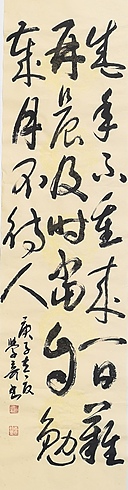 盛年不重來一日難
再晨及时當自勉
歲月不待人
庚子
書